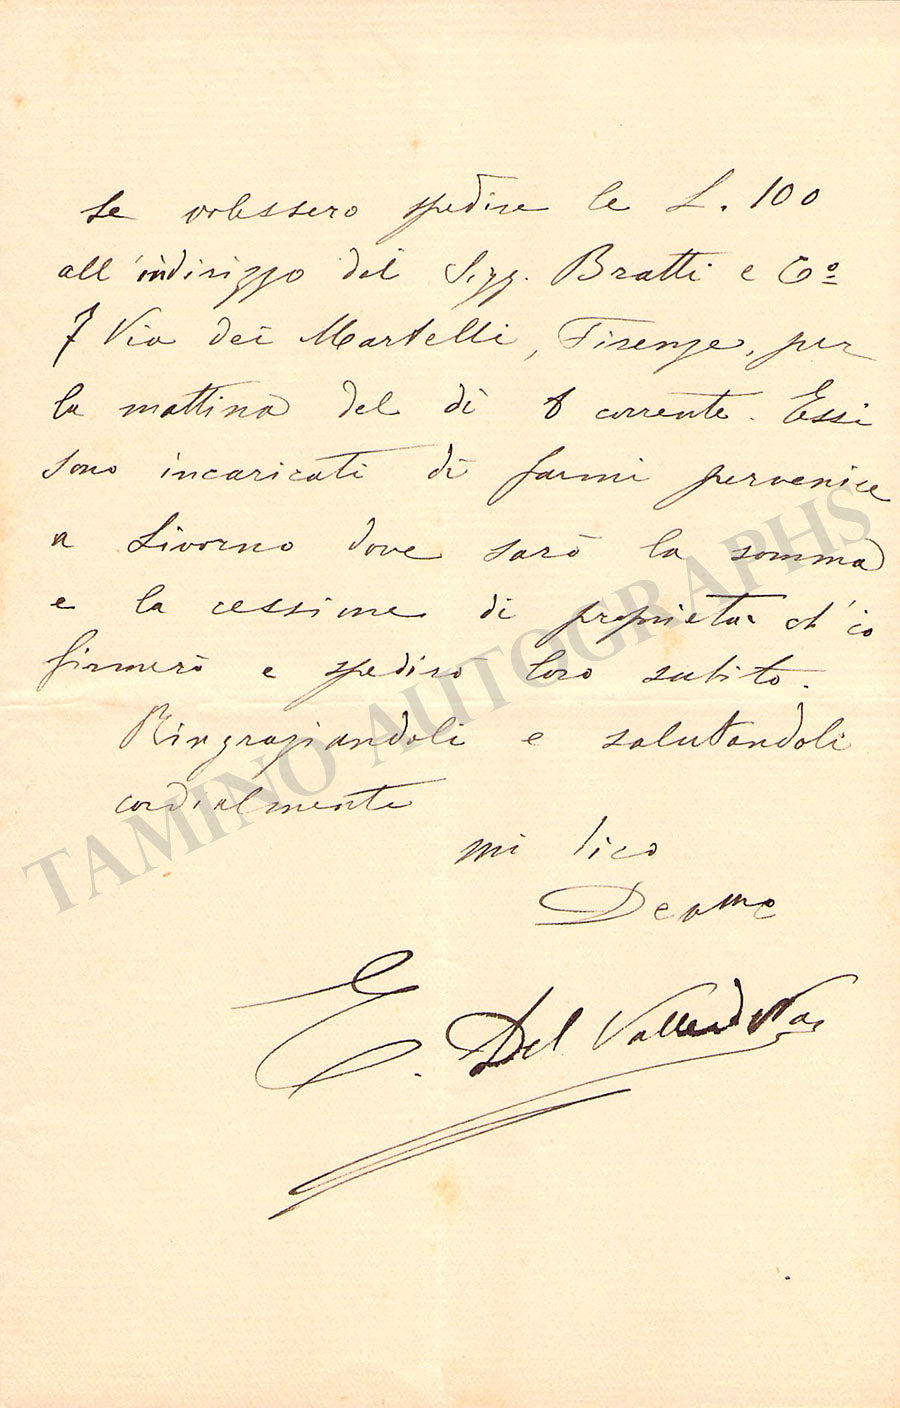 Se volessero spedire le L. 100
all'indirizzo dei Sigg. Bratti e Cº
7 Via dei Martelli, Firenze, per
la mattina del dì 8 corrente. Essi
sono incaricati di farmi pervenire
a Livorno dove sarò la somma
e la cessione di proprietà ch'io
firmerò e spedirò loro subito.
Ringraziandoli e salutandoli
cordialmente
mi dico
E. Del Valle de Paz
TAMINO AUTOGRAPHS